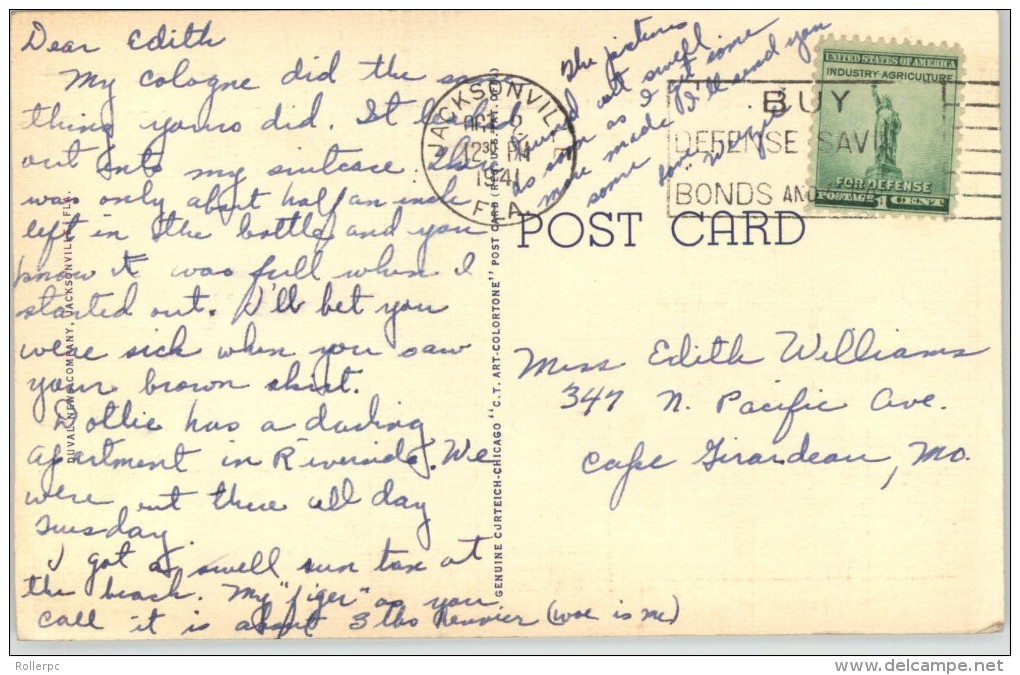 Dear Edith
My cologne did the same
thing yours did. It leaked
out into my suitcase. There
was only about half an inch
left in the bottle and you
know it was full when I
started out. I'll bet you
were sick when you saw
your brown skirt.
Dottie has a darling
apartment in Riverside. We
were out there all day
Tuesday.
I got a swell sun tan at
the beach. My "figer" as you
call it is about 3 lbs heavier (woe is me)
The pictures
turned out swell.
as soon as I get some
more made I'll send you
some
JACKSONVILLE
OCT 2
12 30 PM
1941
FLA.
BUY
DEFENSE SAVI
BONDS AND
UNITED STATES OF AMERICA
INDUSTRY-AGRICULTURE
FOR DEFENSE
POSTAGE 1 CENT
POST CARD
Miss Edith Williams
347 N. Pacific Ave.
Cape Girardeau, Mo.
DUVAL NEWS COMPANY, JACKSONVILLE, FLA.
GENUINE CURTEICH-CHICAGO "C.T. ART-COLORTONE" POST CARD (REG. U.S. PAT. OFF.)
Rollerpc
delcampe.net